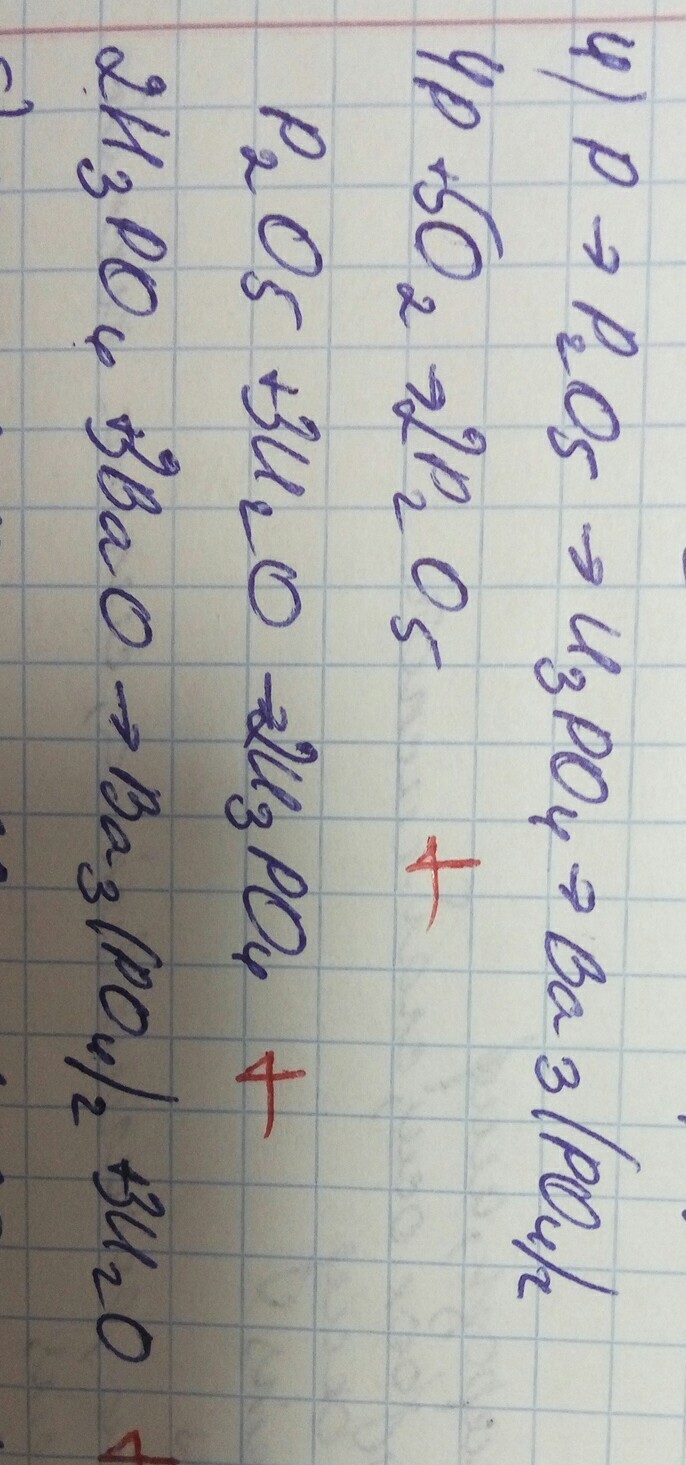 4) P → P₂O₅ → H₃PO₄ → Ba₃(PO₄)₂
4P + 5O₂ → 2P₂O₅ +
P₂O₅ + 3H₂O → 2H₃PO₄ +
2H₃PO₄ + 3BaO → Ba₃(PO₄)₂ + 3H₂O +